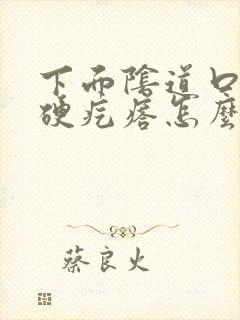 下面陰道口
硬疙瘩怎麼
蔡良火